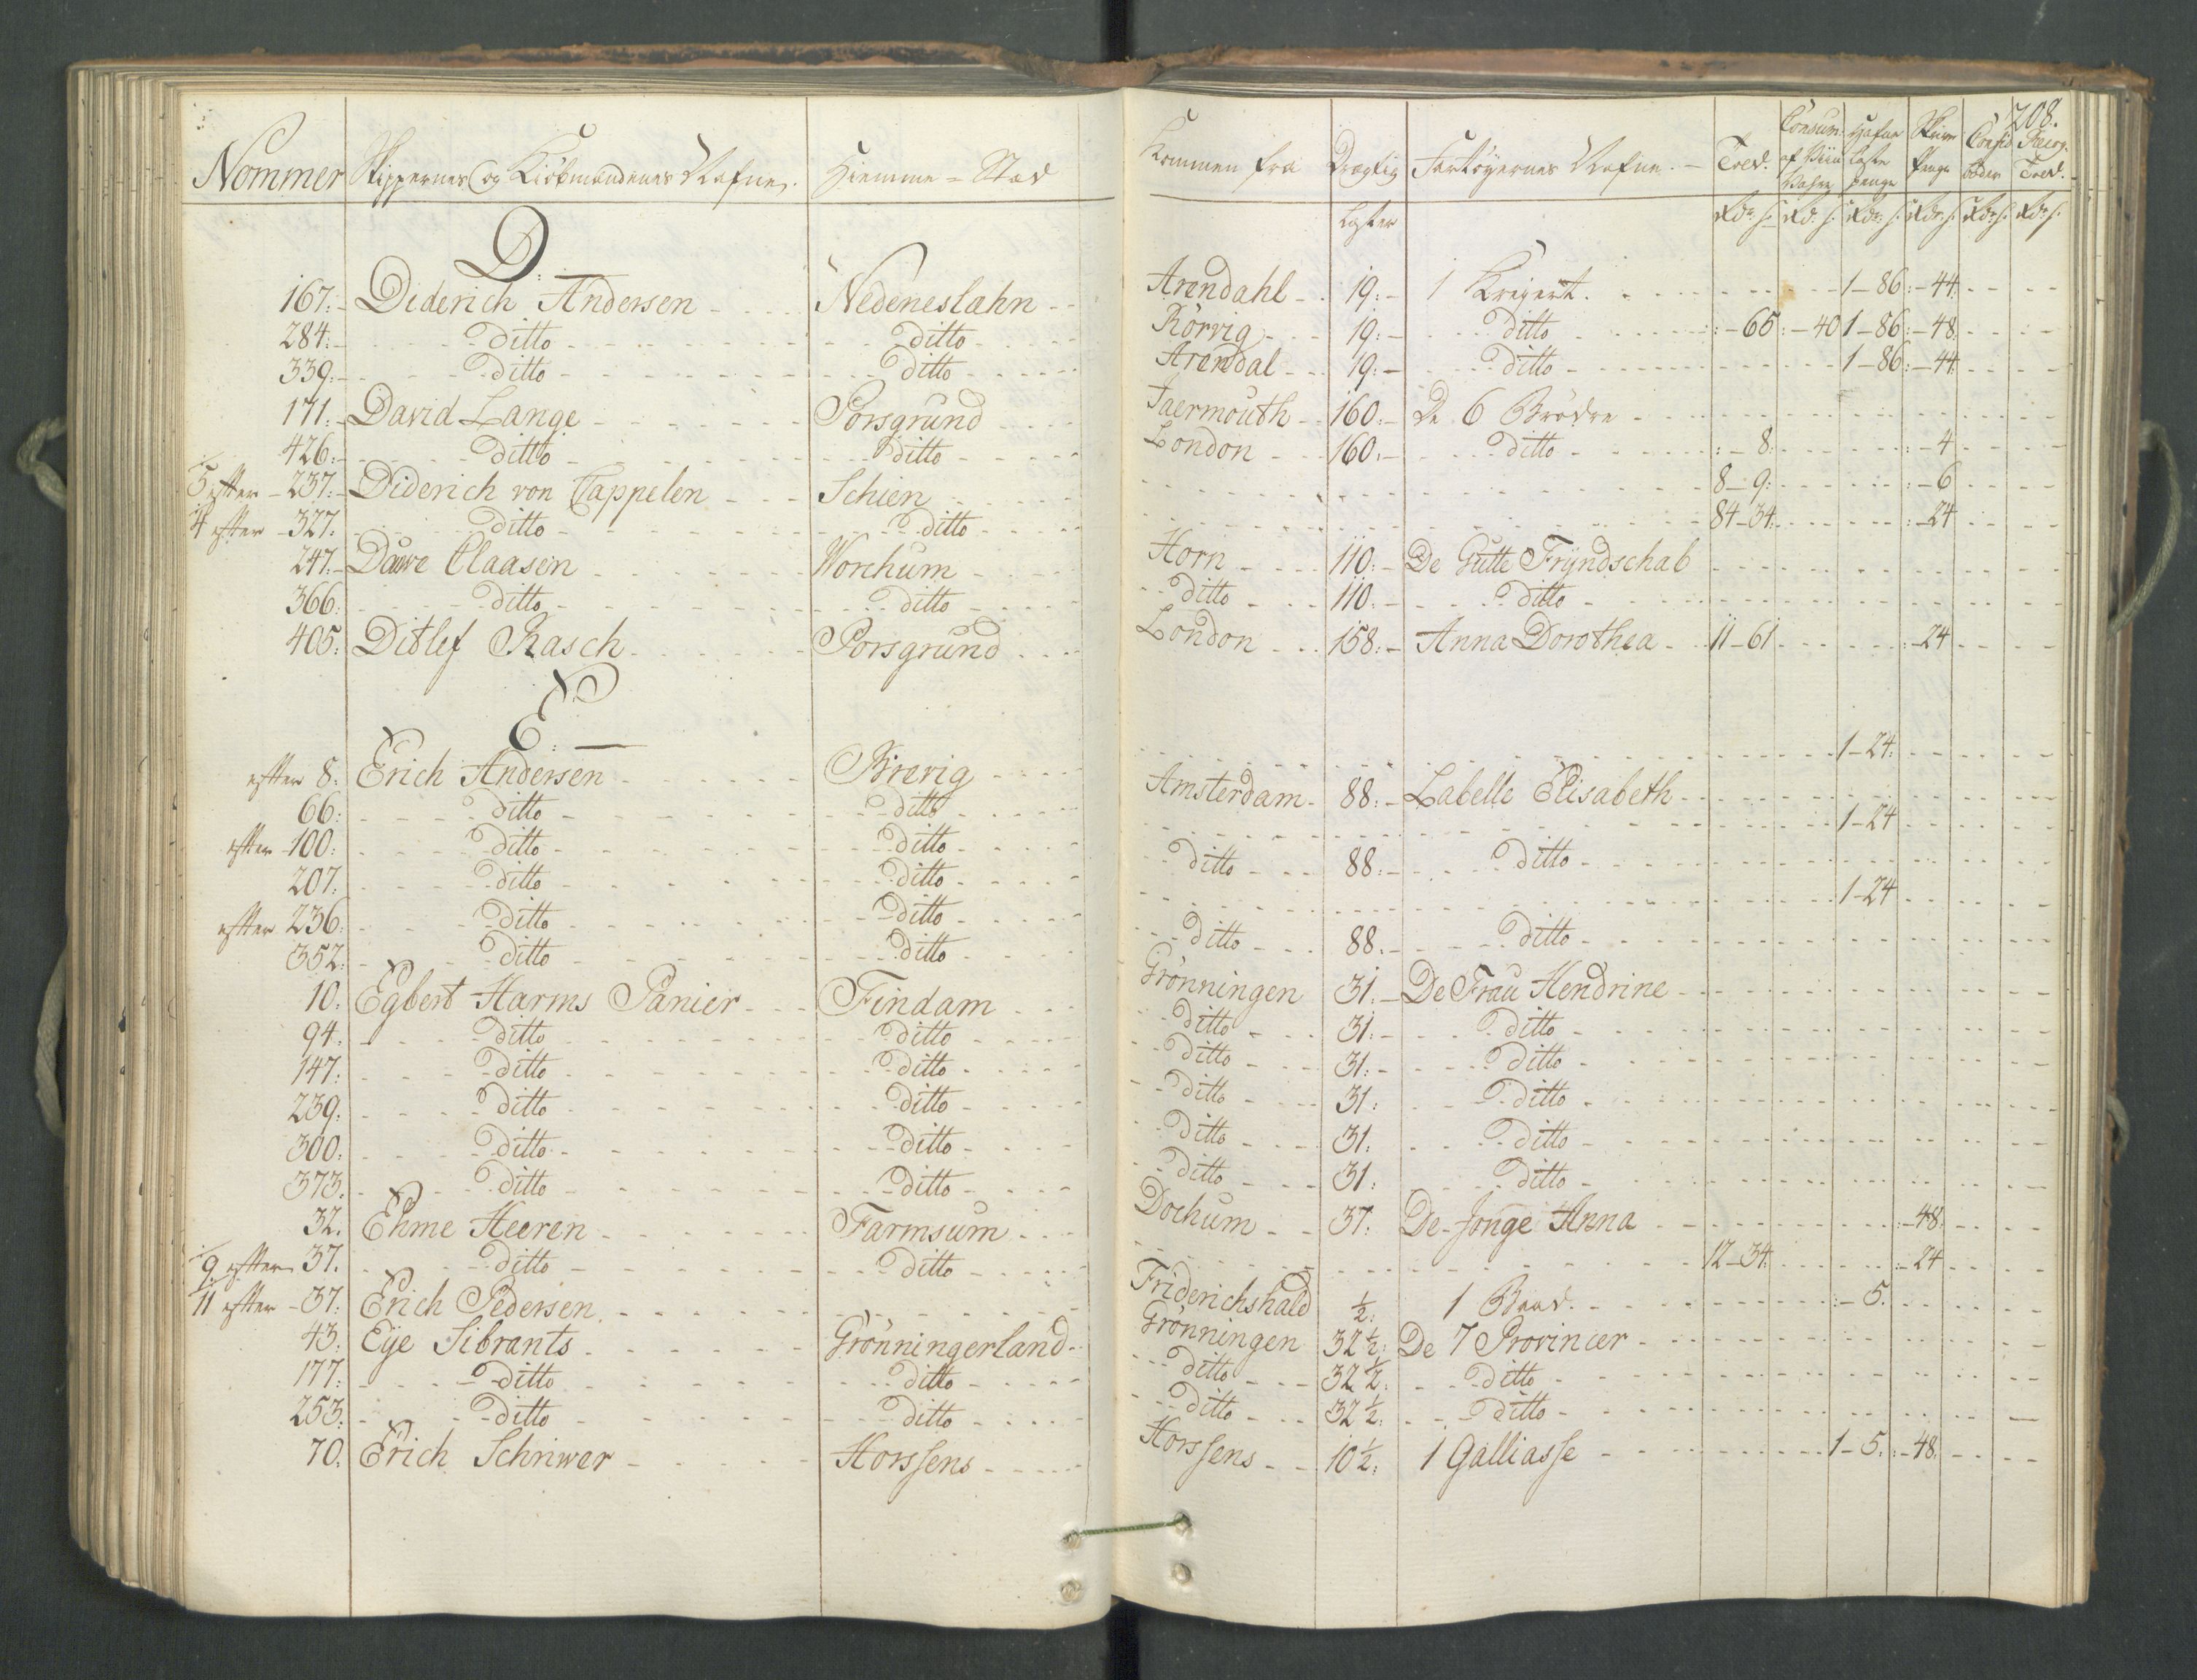 208.
Nommer Skippernes og Kiøbmændenes Nafne. Hiemme-Stæd Kommen fra Drægtig Fartøyernes Nafne. Told. Consum: af Viin Vahre Hafne Laste Penge Skriver Penge Told.
Læster Rdr. s. Rd. s. Rdr. s. Rdr. s. Rdr s. Rdr s.
D:
167. Diderich Andersen Nedeneslahn Arendahl 19. 1 Kreyert. 1-86 :-44.
284. ditto ditto Rörvig 19. ditto :-65 :-40 1-86 :-48
339. ditto ditto Arendal 19. ditto 1-86 :-44
171. David Lange Porsgrund Jaermouth 160. De 6 Brødre
426. ditto ditto London 160. ditto :-8: :-4
5 efter 237. Diderich von Cappelen Schien 8-9: :-6
4 efter 327. ditto ditto 84-34. :-24
247. Dauve Claasen Worchum Horn 110. De Gutte Fryndschab
366. ditto ditto ditto 110. ditto
405. Ditlef Rasch Porsgrund London 158. Anna Dorothea 11-61 :-24
E:
efter 8. Erich Andersen Brevig 1-24.
66. ditto ditto Amsterdam 88. Labelle Elisabeth
efter 100. ditto ditto 1-24
207. ditto ditto ditto 88. ditto
efter 236. ditto ditto 1-24
352. ditto ditto ditto 88. ditto
10. Egbert Harms Panier Findam Grönningen 31. De Frau Hendrine
94. ditto ditto ditto 31. ditto
147. ditto ditto ditto 31. ditto
239. ditto ditto ditto 31. ditto
300. ditto ditto ditto 31. ditto
373. ditto ditto ditto 31. ditto
32. Ehme Heeren Farmsum Dockum 37. De Jonge Anna :-48.
9 efter 37. ditto ditto 12-34. :-24
11 efter 37. Erich Pedersen Friderichshald ½. 1 Baad. :-5.
43. Eye Sibrants Grönningerland Grönningen 32½. De 7 Provincer
177. ditto ditto ditto 32½. ditto
253. ditto ditto ditto 32½. ditto
70. Erich Schriwer Horssens Horssens 10½. 1 Galliasse 1-5. :-48.